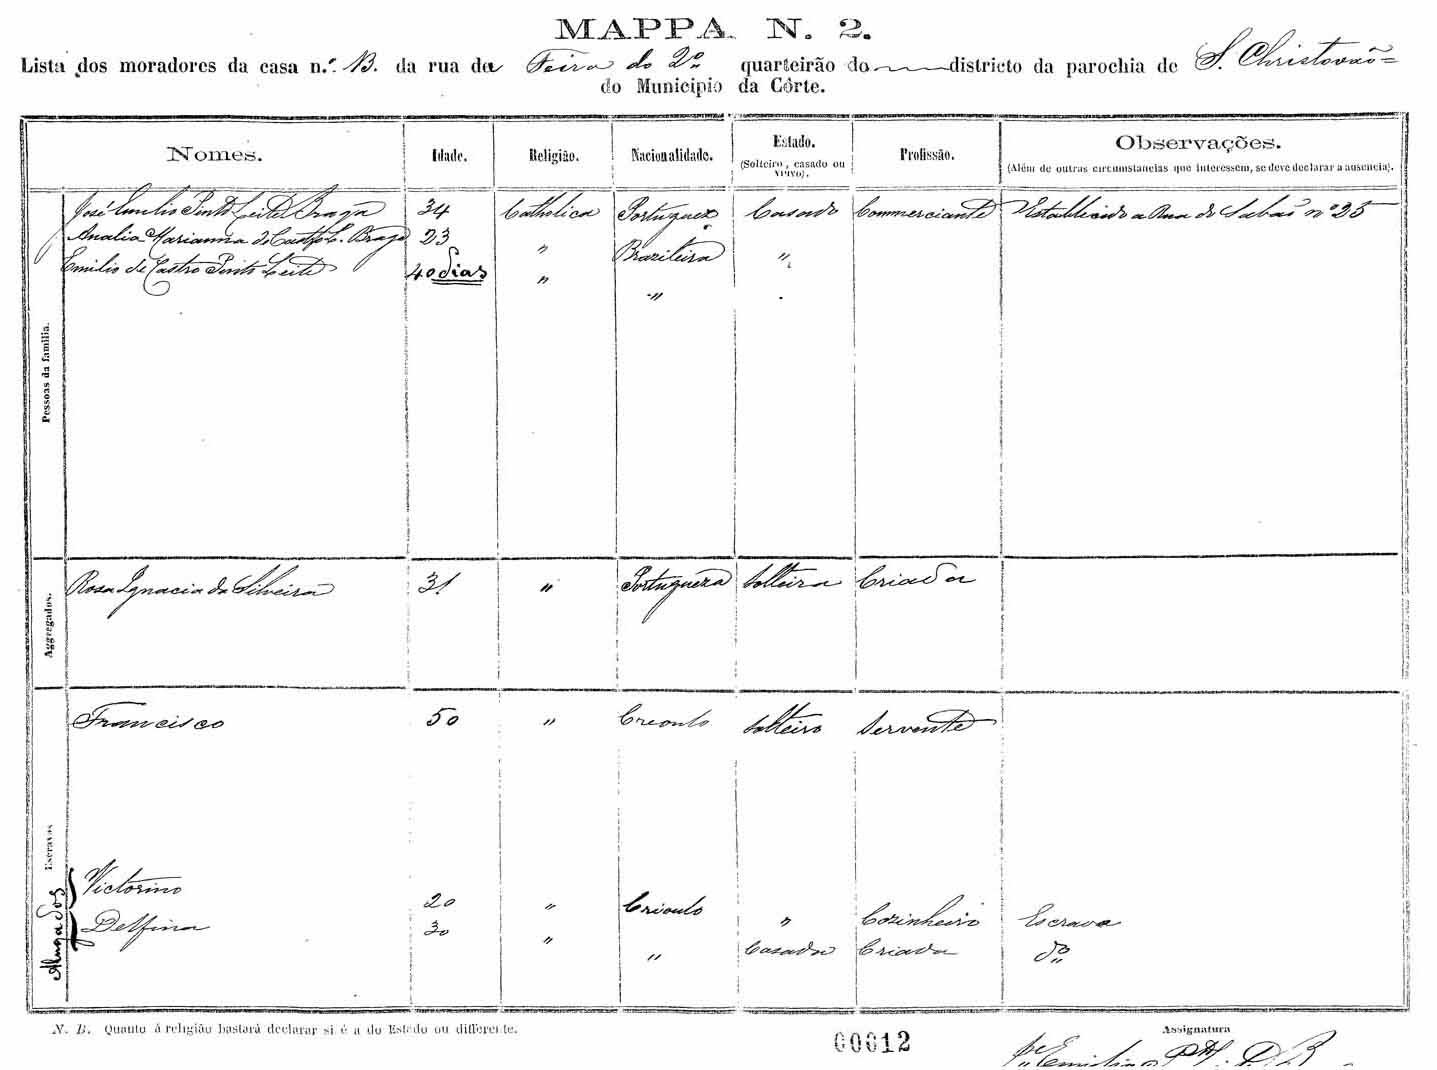 MAPPA N. 2.
Lista dos moradores da casa n.º 13. da rua da Feira do 2º quarteirão do districto da parochia de S. Christovão
do Municipio da Côrte.
Nomes. Idade. Religião. Nacionalidade. Estado. (Solteiro, casado ou viuvo). Profissão. Observações. (Além de outras circumstancias que interessem, se deve declarar a ausencia).
Pessoas da familia.
José Emilio Pinto Leite Braga 34 Catholica Portuguez Casado Commerciante Establecido a Rua do Sabaõ nº 25
Analia Marianna de Castro L. Braga 23 " Brazileira "
Emilio de Castro Pinto Leite 40 dias " "
Aggregados.
Rosa Ignacia da Silveira 31 " Portugueza Solteira Criada
Escravos
Francisco 50 " Creoulo Solteiro Servente
Alugados
Victorino 20 " Crioulo " Cozinheiro Escravo
Delfina 30 " " Casada Criada dº
N. B. Quanto á religião bastará declarar si é a do Estado ou differente.
00012
Assignatura
Emilio P.